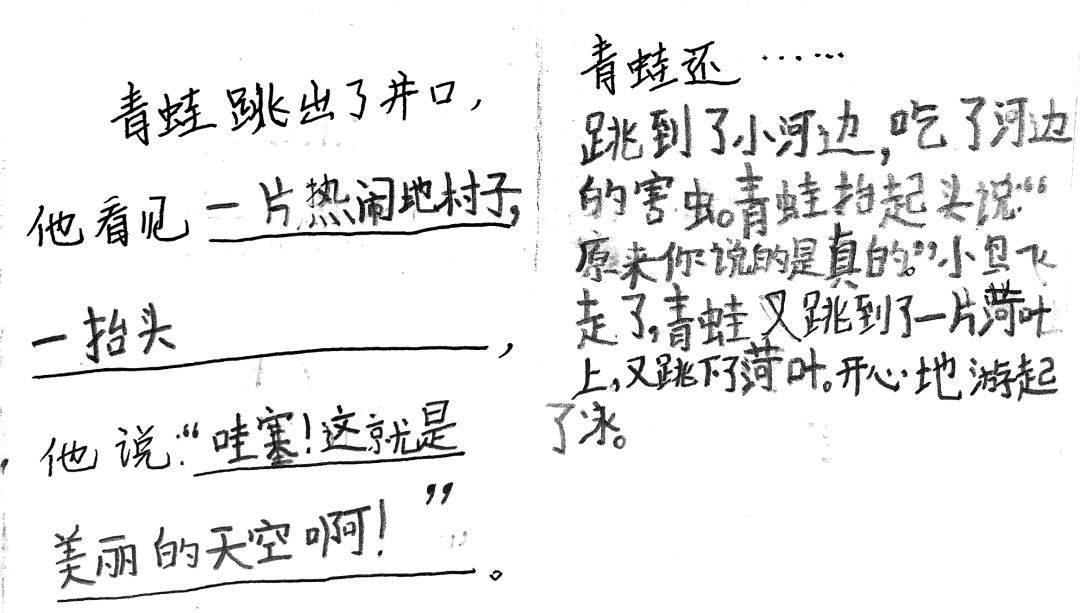 青蛙跳出了井口，
他看见一片热闹地村子，
一抬头，
他说：“哇塞！这就是
美丽的天空啊！”。
青蛙还……
跳到了小河边，吃了河边
的害虫。青蛙抬起头说“
原来你说的是真的。”小鸟飞
走了，青蛙又跳到了一片荷叶
上，又跳下了荷叶。开心地游起
了泳。